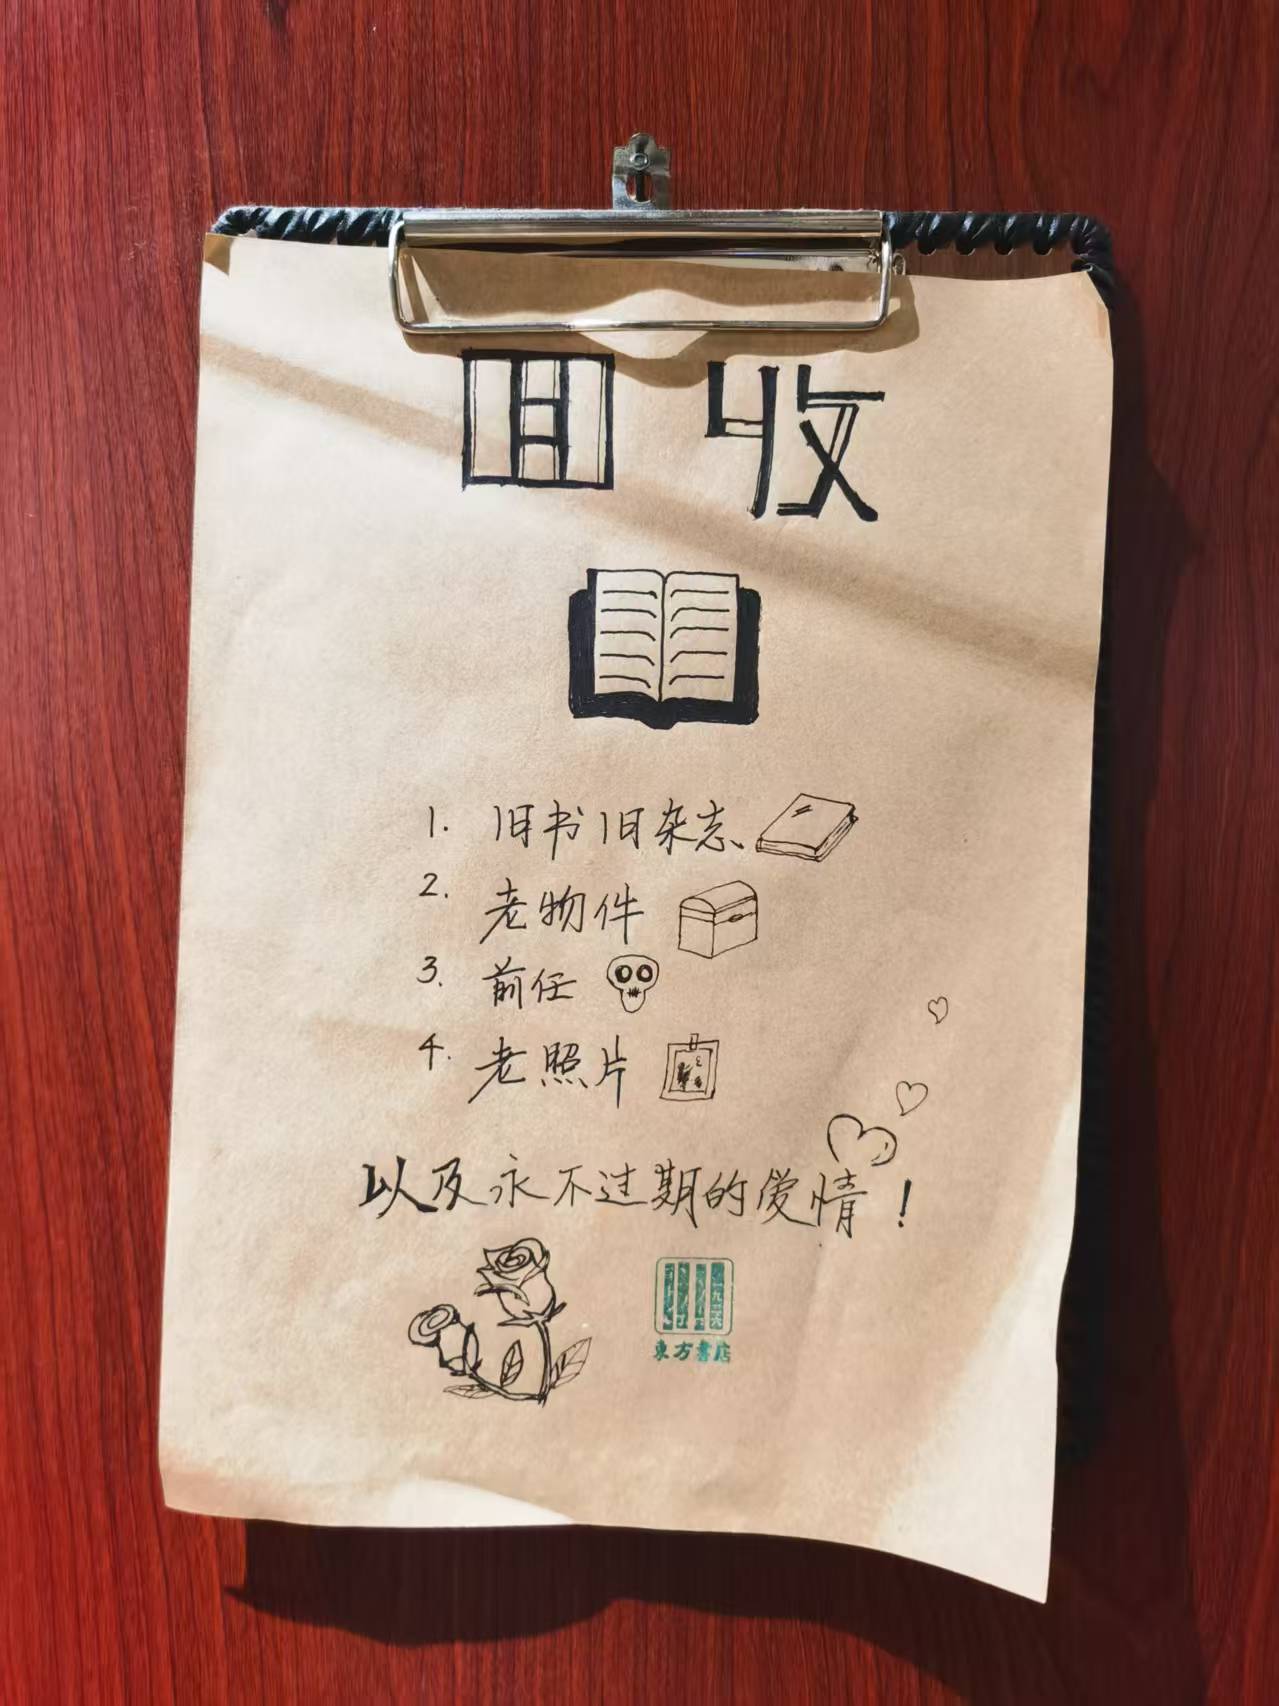 回收
1. 旧书旧杂志、
2. 老物件
3. 前任
4. 老照片
以及永不过期的爱情！
一九二六
東方書店